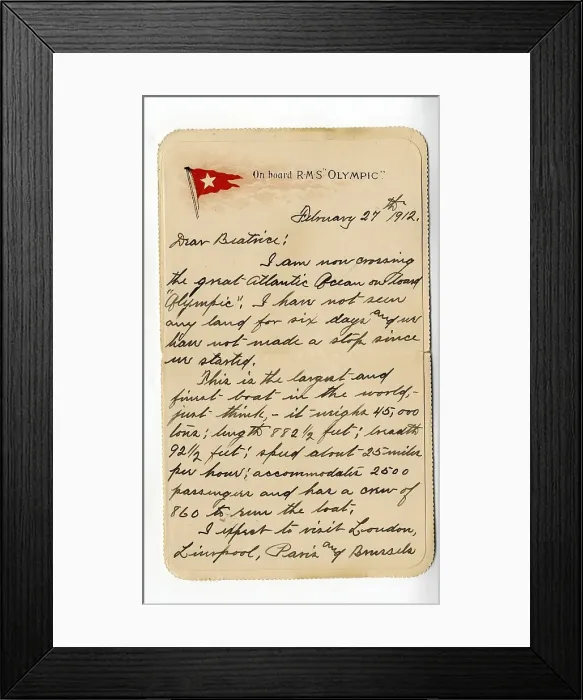 On board R·M·S "OLYMPIC"
February 27th 1912.
Dear Beatrice;
I am now crossing
the great Atlantic Ocean on board
"Olympic". I have not seen
any land for six days and we
have not made a stop since
we started.
This is the largest and
finest boat in the world,-
just think,- it weighs 45,000
tons; length 882 1/2 feet; breadth
92 1/2 feet; speed about 25 miles
per hour; accommodates 2500
passengers and has a crew of
860 to run the boat.
I expect to visit London,
Liverpool, Paris and Brussels